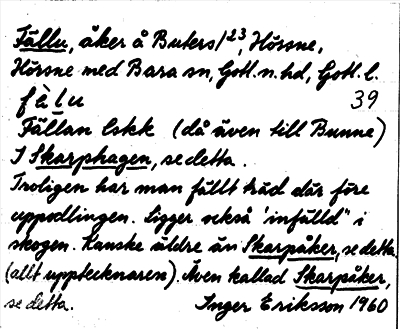 Fällu, åker å Buters 1²³, Hörsne,
Hörsne med Bara sn, Gotl. n. hd, Gotl. l.
fὲlu 39
Fällan lskk (då även till Bunne)
I Skarphagen, se detta.
Troligen har man fällt träd där före
uppodlingen. Ligger också 'infälld" i
skogen. Kanske äldre än Skarpåker, se detta
(allt upptecknaren). Även kallad Skarpåker,
se detta. Inger Eriksson 1960